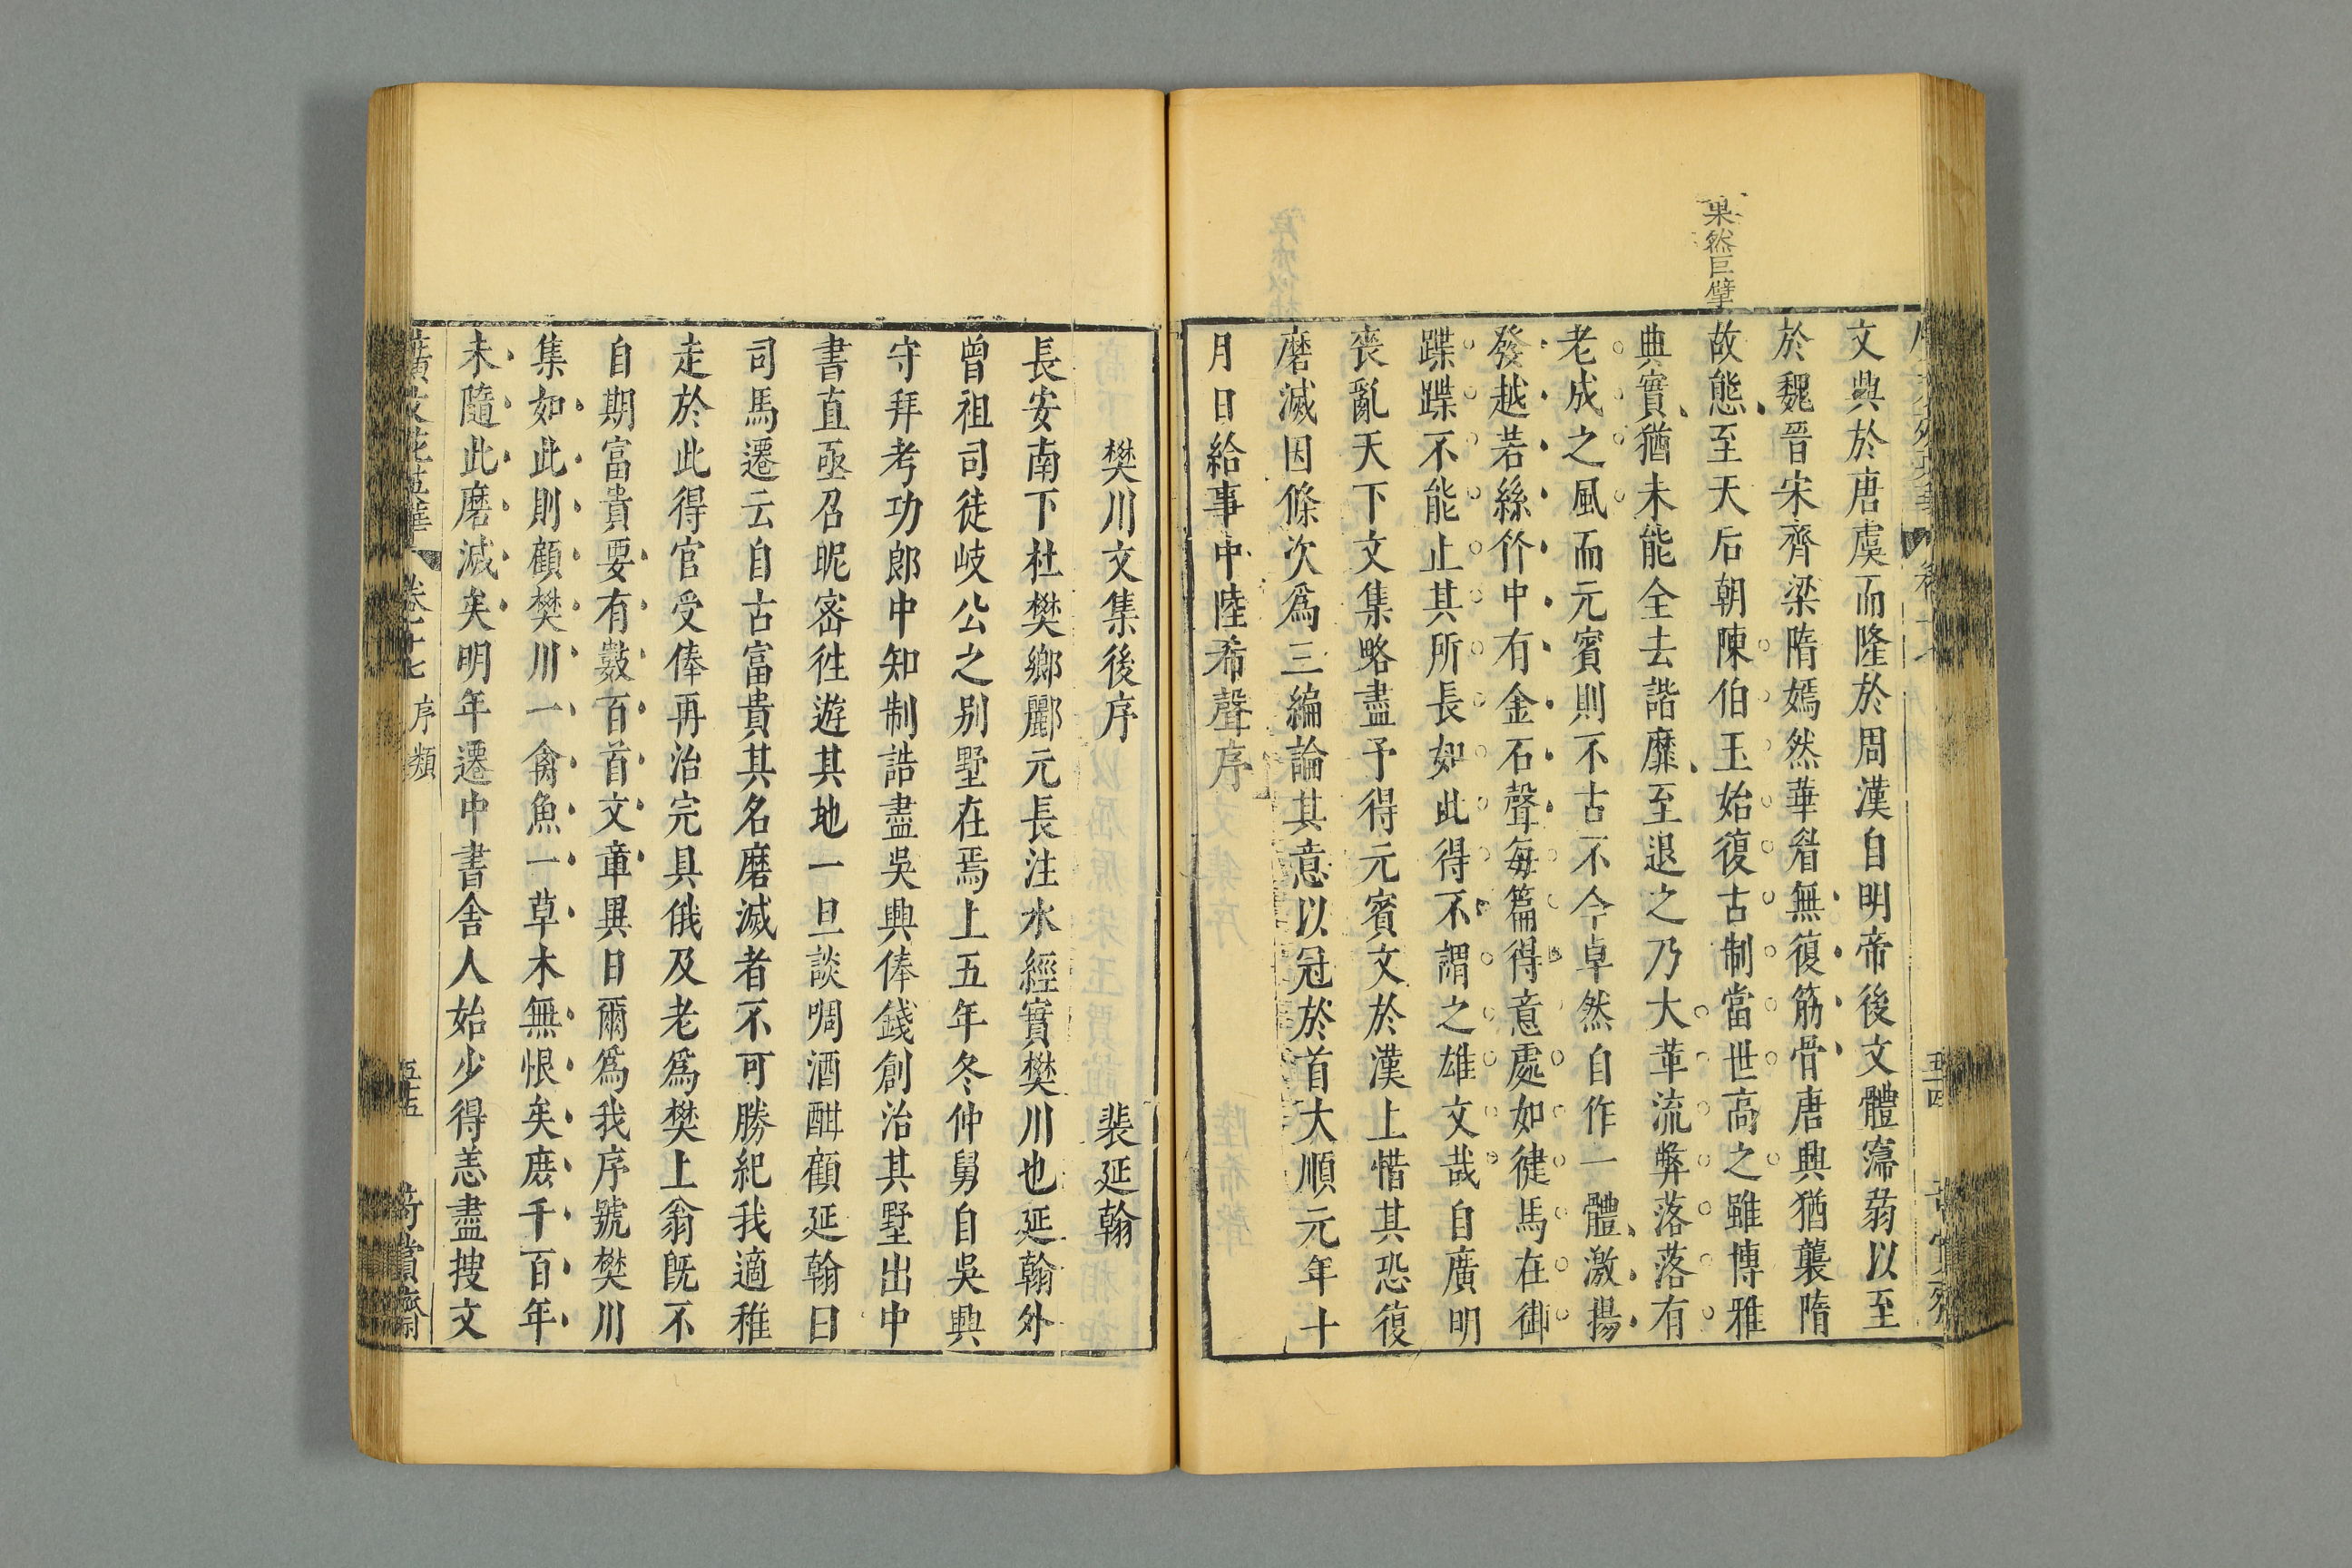 果然巨擘
文興於唐虞而隆於周漢自明帝後文體寖蒻以至
於魏晉宋齊梁隋嫣然華媚無復筋骨唐興猶襲隋
故態至天后朝陳伯玉始復古制當世高之雖博雅
典實猶未能全去諧靡至退之乃大革流弊落落有
老成之風而元賓則不古不今卓然自作一體激揚
發越若絲竹中有金石聲每篇得意處如健馬在御
蹀蹀不能止其所長如此得不謂之雄文哉自廣明
喪亂天下文集略盡予得元賓文於漢上惜其恐復
磨滅因條次爲三編論其意以冠於首大順元年十
月日給事中陸希聲序
樊川文集後序 裴延翰
長安南下杜樊鄉酈元長注水經實樊川也延翰外
曾祖司徒岐公之别墅在焉上五年冬仲舅自吳興
守拜考功郎中知制誥盡吳興俸錢創治其墅出中
書直亟召昵密徃遊其地一旦談啁酒酣顧延翰曰
司馬遷云自古富貴其名磨滅者不可勝紀我適稚
走於此得官受俸再治完具俄及老爲樊上翁旣不
自期富貴要有數百首文章異日爾爲我序號樊川
集如此則顧樊川一禽魚一草木無恨矣庶千百年
未隨此磨滅矣明年遷中書舍人始少得恙盡搜文
廣文苑英華 卷二十七 序類 五十五